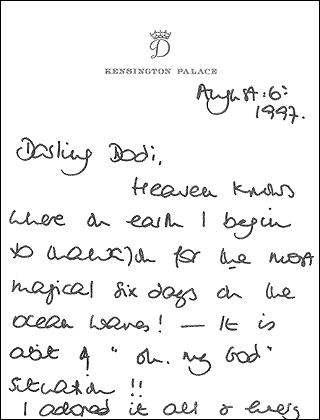 D
KENSINGTON PALACE
August: 6:
1997.
Darling Dodi,
Heaven knows
where on earth I begin
to thank you for the most
magical six days on the
ocean waves! – It is
abit of "oh. my God"
situation!!
I adored it all & every